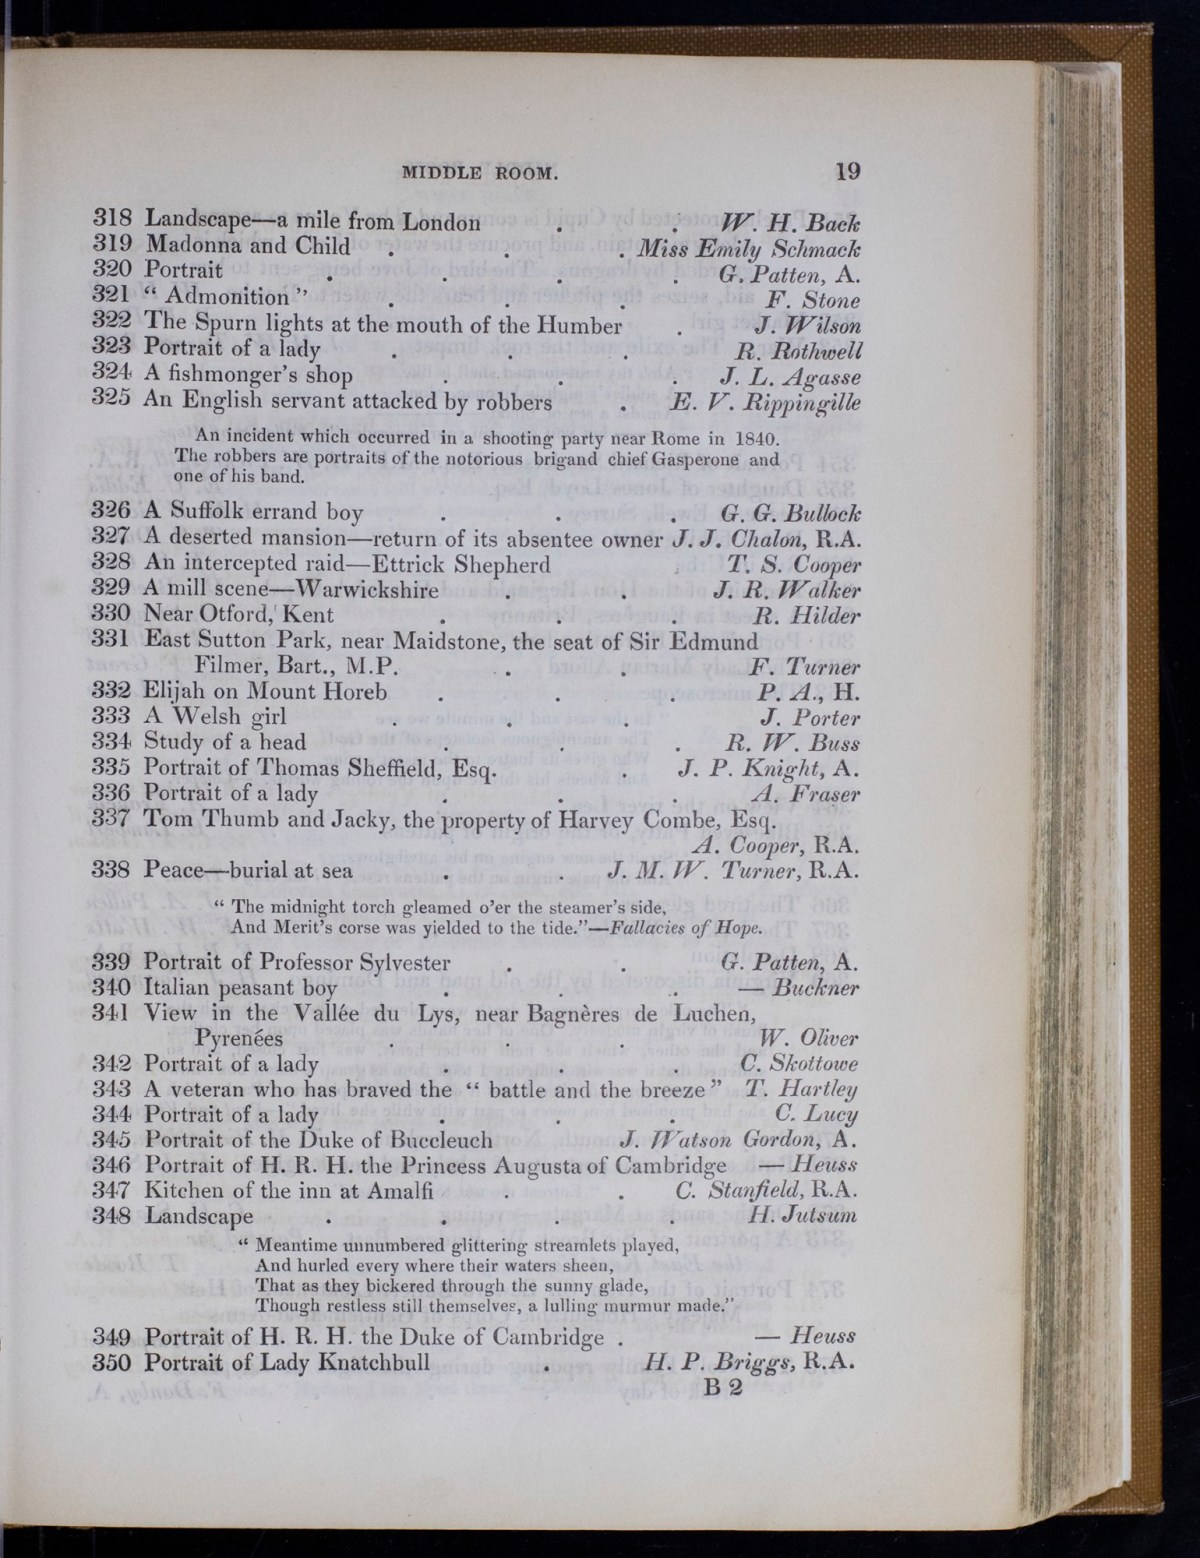 MIDDLE ROOM. 19
318 Landscape—a mile from London . . W. H. Back
319 Madonna and Child . . . Miss Emily Schmack
320 Portrait . . . . G. Patten, A.
321 “ Admonition ” . . . F. Stone
322 The Spurn lights at the mouth of the Humber . J. Wilson
323 Portrait of a lady . . . R. Rothwell
324 A fishmonger’s shop . . . J. L. Agasse
325 An English servant attacked by robbers . E. V. Rippingille
An incident which occurred in a shooting party near Rome in 1840.
The robbers are portraits of the notorious brigand chief Gasperone and
one of his band.
326 A Suffolk errand boy . . . G. G. Bullock
327 A deserted mansion—return of its absentee owner J. J. Chalon, R.A.
328 An intercepted raid—Ettrick Shepherd . T. S. Cooper
329 A mill scene—Warwickshire . . J. R. Walker
330 Near Otford, Kent . . . R. Hilder
331 East Sutton Park, near Maidstone, the seat of Sir Edmund
Filmer, Bart., M.P. . . F. Turner
332 Elijah on Mount Horeb . . . P. A., H.
333 A Welsh girl . . . J. Porter
334 Study of a head . . . R. W. Buss
335 Portrait of Thomas Sheffield, Esq. . J. P. Knight, A.
336 Portrait of a lady . . . A. Fraser
337 Tom Thumb and Jacky, the property of Harvey Combe, Esq.
A. Cooper, R.A.
338 Peace—burial at sea . . J. M. W. Turner, R.A.
“ The midnight torch gleamed o’er the steamer’s side,
And Merit’s corse was yielded to the tide.”—Fallacies of Hope.
339 Portrait of Professor Sylvester . . G. Patten, A.
340 Italian peasant boy . . . — Buckner
341 View in the Vallée du Lys, near Bagnères de Luchen,
Pyrenées . . . W. Oliver
342 Portrait of a lady . . . C. Skottowe
343 A veteran who has braved the “ battle and the breeze ” T. Hartley
344 Portrait of a lady . . . C. Lucy
345 Portrait of the Duke of Buccleuch J. Watson Gordon, A.
346 Portrait of H. R. H. the Princess Augusta of Cambridge — Heuss
347 Kitchen of the inn at Amalfi . . C. Stanfield, R.A.
348 Landscape . . . . H. Jutsum
“ Meantime unnumbered glittering streamlets played,
And hurled every where their waters sheen,
That as they bickered through the sunny glade,
Though restless still themselves, a lulling murmur made.”
349 Portrait of H. R. H. the Duke of Cambridge . — Heuss
350 Portrait of Lady Knatchbull . H. P. Briggs, R.A.
B 2